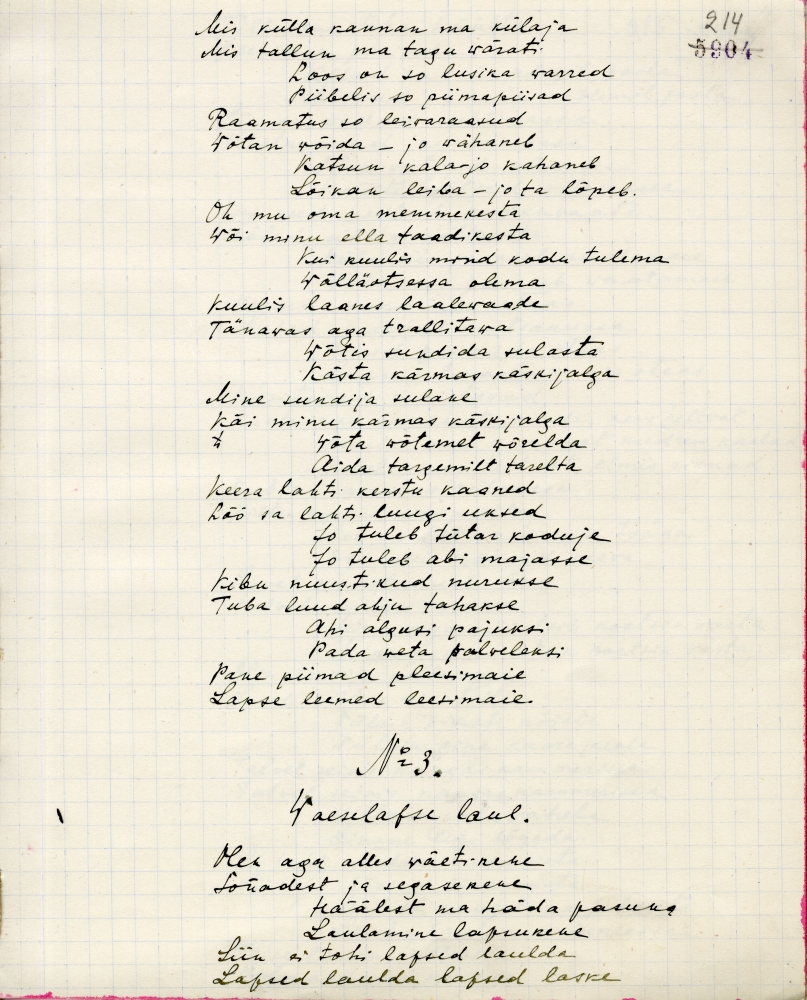 214
5904
Mis kütla kannan ma külaja
Mis tallun ma tagu wärati
Loos on so lusika warred
Piibelis so piimapiisad
Raamatus so leiwaraasud
Wõtan wõida – jo wähaneb
Katsun kala-jo kahaneb
Lõikan leiba – jo ta lõpeb.
Oh mu oma memmekesta
Wõi minu ella taadikesta
Kui kuulis mind kodu tulema
Wälläotsessa olema
Kuulis laanes laalewaade
Tänawas aga trallitawa
Wõtis sundida sulasta
Kästa kärmas käskijalga
Mine sundija sulane
Käi minu kärmas käskijalga
Wõta wõtemet wõrelda
Aida targemilt tarelta
Keera lahti kerstu kaaned
Löö sa lahti luugi uksed
Jo tuleb tütar koduje
Jo tuleb abi majasse
Kibu nuustikud nurukse
Tuba luud ahju tahakse
Api algusi pajuksi
Pada weta palweleksi
Pane piimad pleesimaie
Lapse leemed leesimaie.
No 3.
Waeselapse laul.
Olen aga alles wäetikene
Sõnadest ja segasekene
Häälest ma häda pasuna
Laulamine lapsukene
Siin ei tohi lapsed laulda
Lapsed laulda lapsed laske